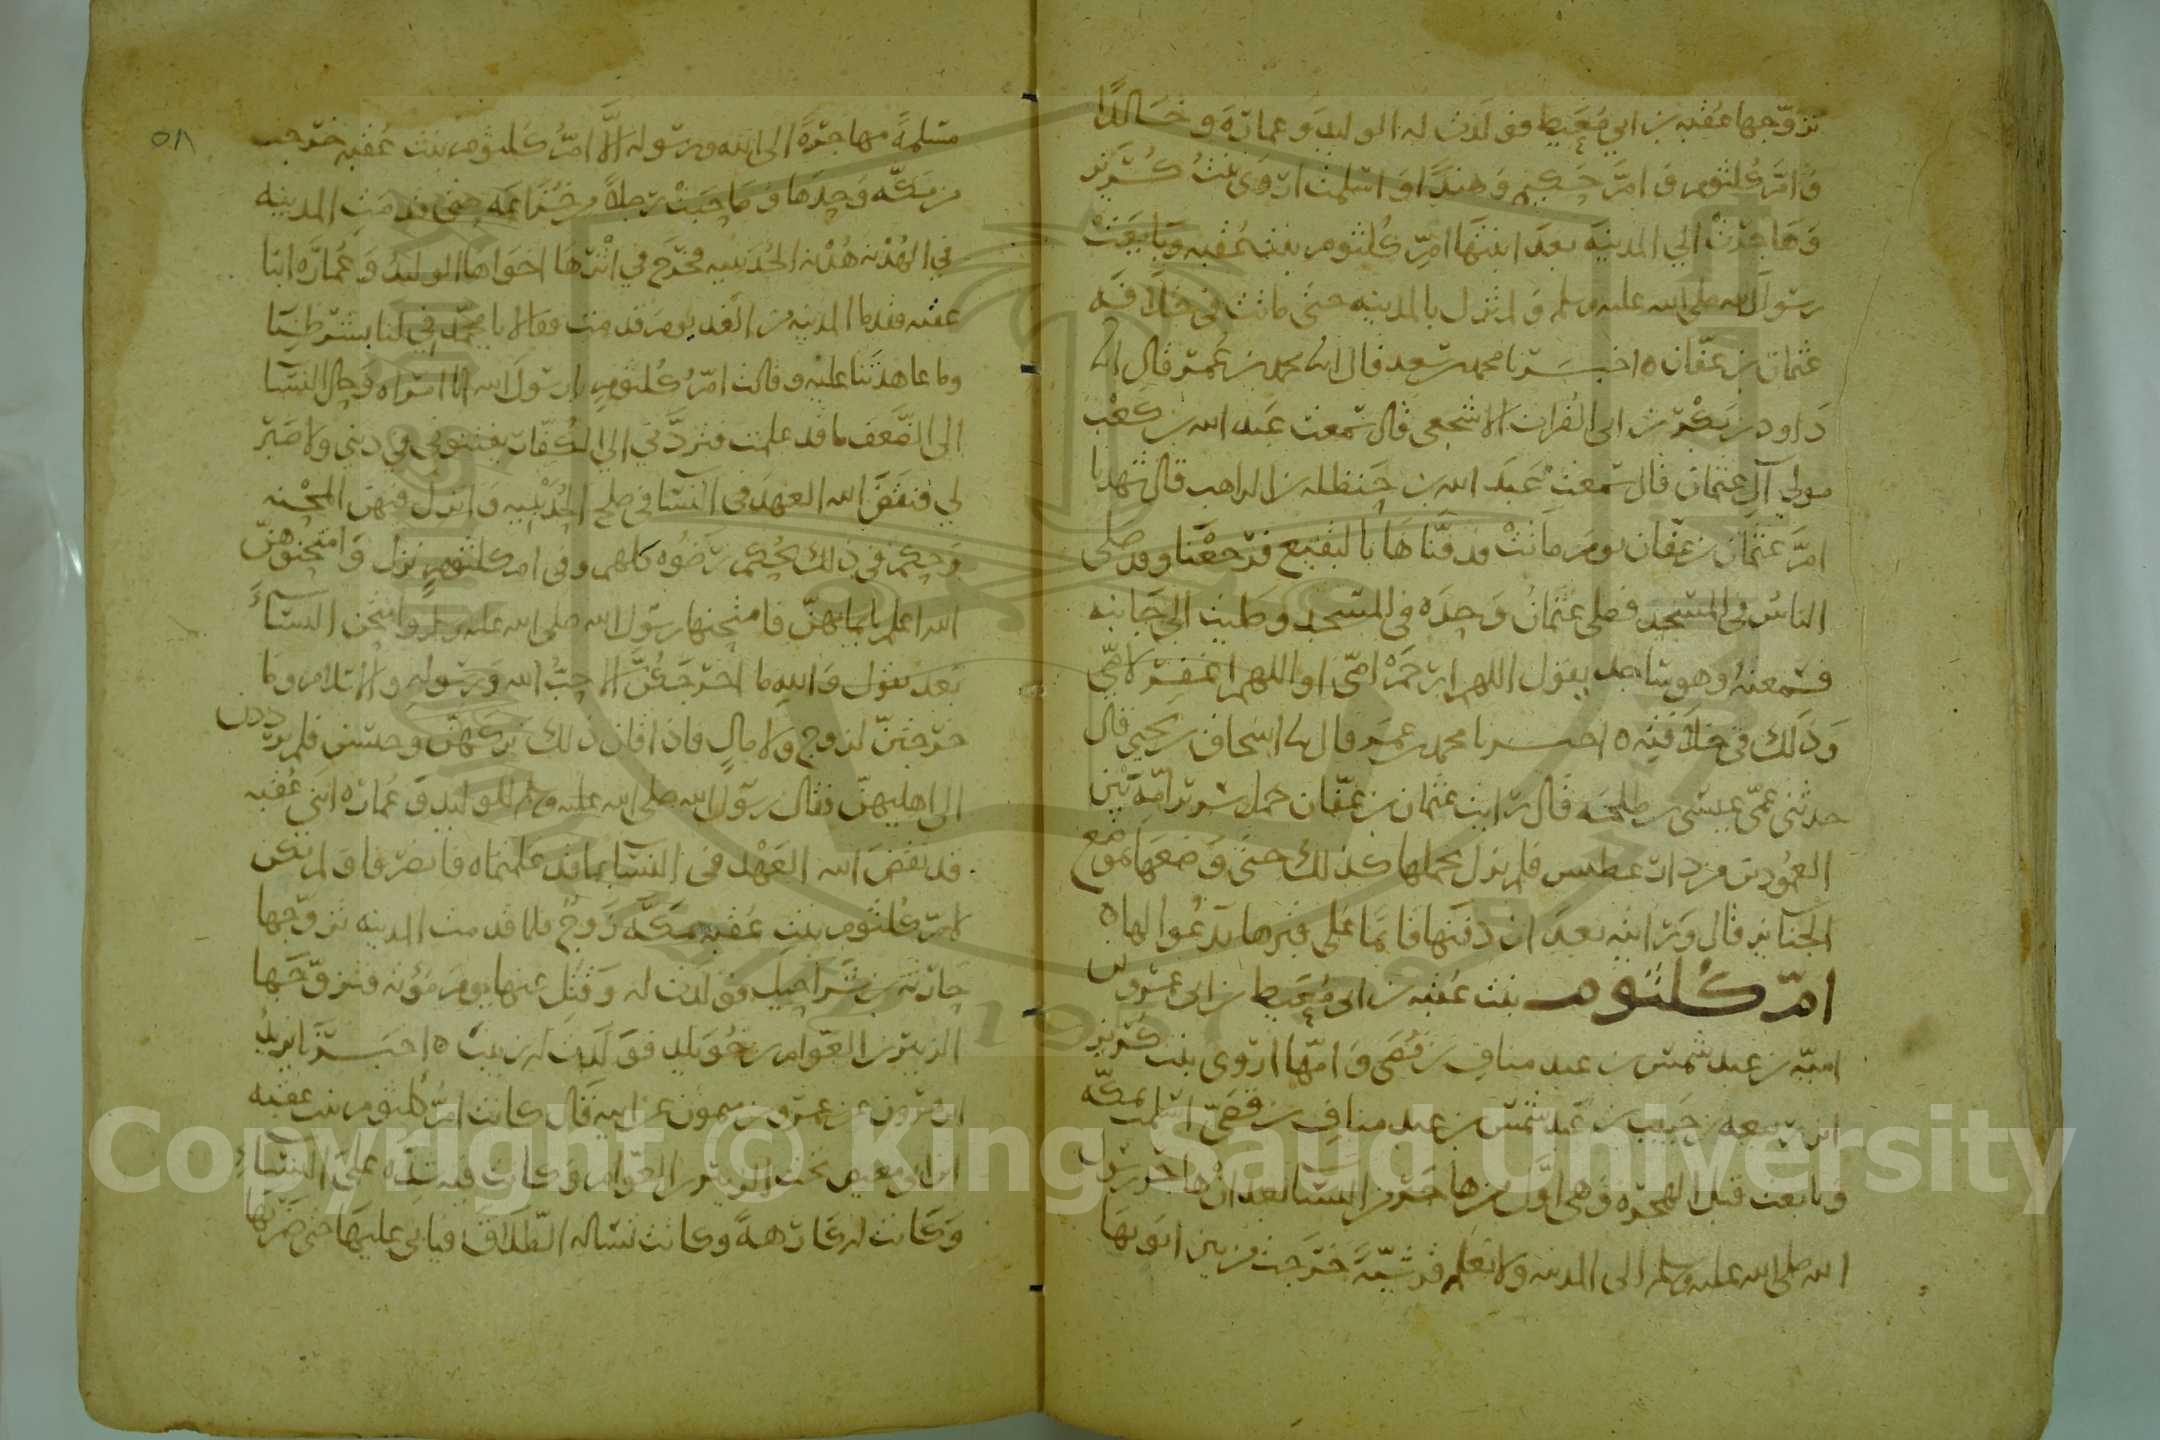 تزوجها عقبه بن ابي معيط فولدت له الوليد وعماره وخالدا
وام كلثوم وام حكيم وهندا واسلمت اروى بنت كريز
وهاجرت الي المدينه بعد ابنتها ام كلثوم بنت عقبه وبايعت
رسول الله صلى الله عليه وسلم ولم تزل بالمدينه حتى ماتت في خلافه
عثمان بن عفان ه اخبرنا محمد بن سعد قال انا محمد بن عمر قال انا
داود بن بكر بن ابى الفرات الاشجعي قال سمعت عبد الله بن كعب
مولي آل عثمان قال سمعت عبد الله بن حنظله بن الراهب قال شهدنا
ام عثمان بن عفان يوم ماتت فدفناها بالبقيع فرجعنا وقد صلى
الناس في المسجد فصلى عثمان وحده في المسجد وصليت الى جانبه
فسمعته وهو ساجد يقول اللهم ارحم امي او اللهم اغفر لامي
وذلك في خلافته ه اخبرنا محمد بن عمر قال نا اسحاق بن يحيى قال
حدثني عمي عيسى بن طلحه قال رايت عثمان بن عفان حمل سرير امه بين
العمودين من دار غطيش فلم يزل يحملها كذلك حتى وضعها بموضع
الجنايز قال ورايته بعد ان دفنها قائما على قبرها يدعوا لها ه
ام كلثوم بنت عقبه بن ابي معيط بن ابي عمرو بن
اميه بن عبد شمس بن عبد مناف بن قصي وامها اروى بنت كريز
ابن ربيعه بن حبيب بن عبد شمس بن عبد مناف بن قصي اسلمت بمكه
وبايعت قبل الهجره وهي اول من هاجر من النسا بعد ان هاجر رسول
الله صلى الله عليه وسلم الى المدينه ولا نعلم قرشية خرجت من بين ابويها
٥٨
مسلمة مهاجرة الى الله ورسوله الا ام كلثوم بنت عقبه خرجت
من مكه وحدها وصاحبت رجلا من خزاعه حتى قدمت المدينه
في الهدنه هدنه الحديبيه فخرج في اثرها اخواها الوليد وعماره ابنا
عقبه فقدما المدينه من الغد يوم قدمت فقالا يا محمد في لنا بشرطنا
وما عاهدتنا عليه وقالت ام كلثوم يا رسول الله انا امراه وحال النسا
الى الضعف ما قد علمت فتردني الي الكفار يفتنوني في ديني ولا صبر
لي فنقض الله العهد في النسا في صلح الحديبيه وانزل فيهن المحنه
وحكم في ذلك بحكم رضوه كلهم وفي ام كلثوم نزل وامتحنوهن
الله اعلم بايمانهن فامتحنها رسول الله صلى الله عليه وسلم وامتحن النساء
بعد يقول والله ما اخرجكن الا حب الله ورسوله والاسلام وما
خرجتن لزوج ولا مال فاذا قلن ذلك تركهن وحبسن فلم يرددن
الى اهليهن فقال رسول الله صلى الله عليه وسلم للوليد وعماره ابني عقبه
قد نقض الله العهد في النسا بما قد علمتماه فانصرفا ولم يكن
لام كلثوم بنت عقبه بمكه زوج فلما قدمت المدينه تزوجها
حارثه بن شراحيل فولدت له وقتل عنها يوم مؤته فتزوجها
الزبير بن العوام بن خويلد فولدت له زينب ه اخبرنا يزيد
ابن هرون عن عمرو بن ميمون عن ابيه قال كانت ام كلثوم بنت عقبه
ابن ابي معيط تحت الزبير بن العوام وكانت فيه شده على النساء
وكانت له كارهة وكانت تساله الطلاق فيابى عليها حتى ضربها
Copyright © King Saud University
1957